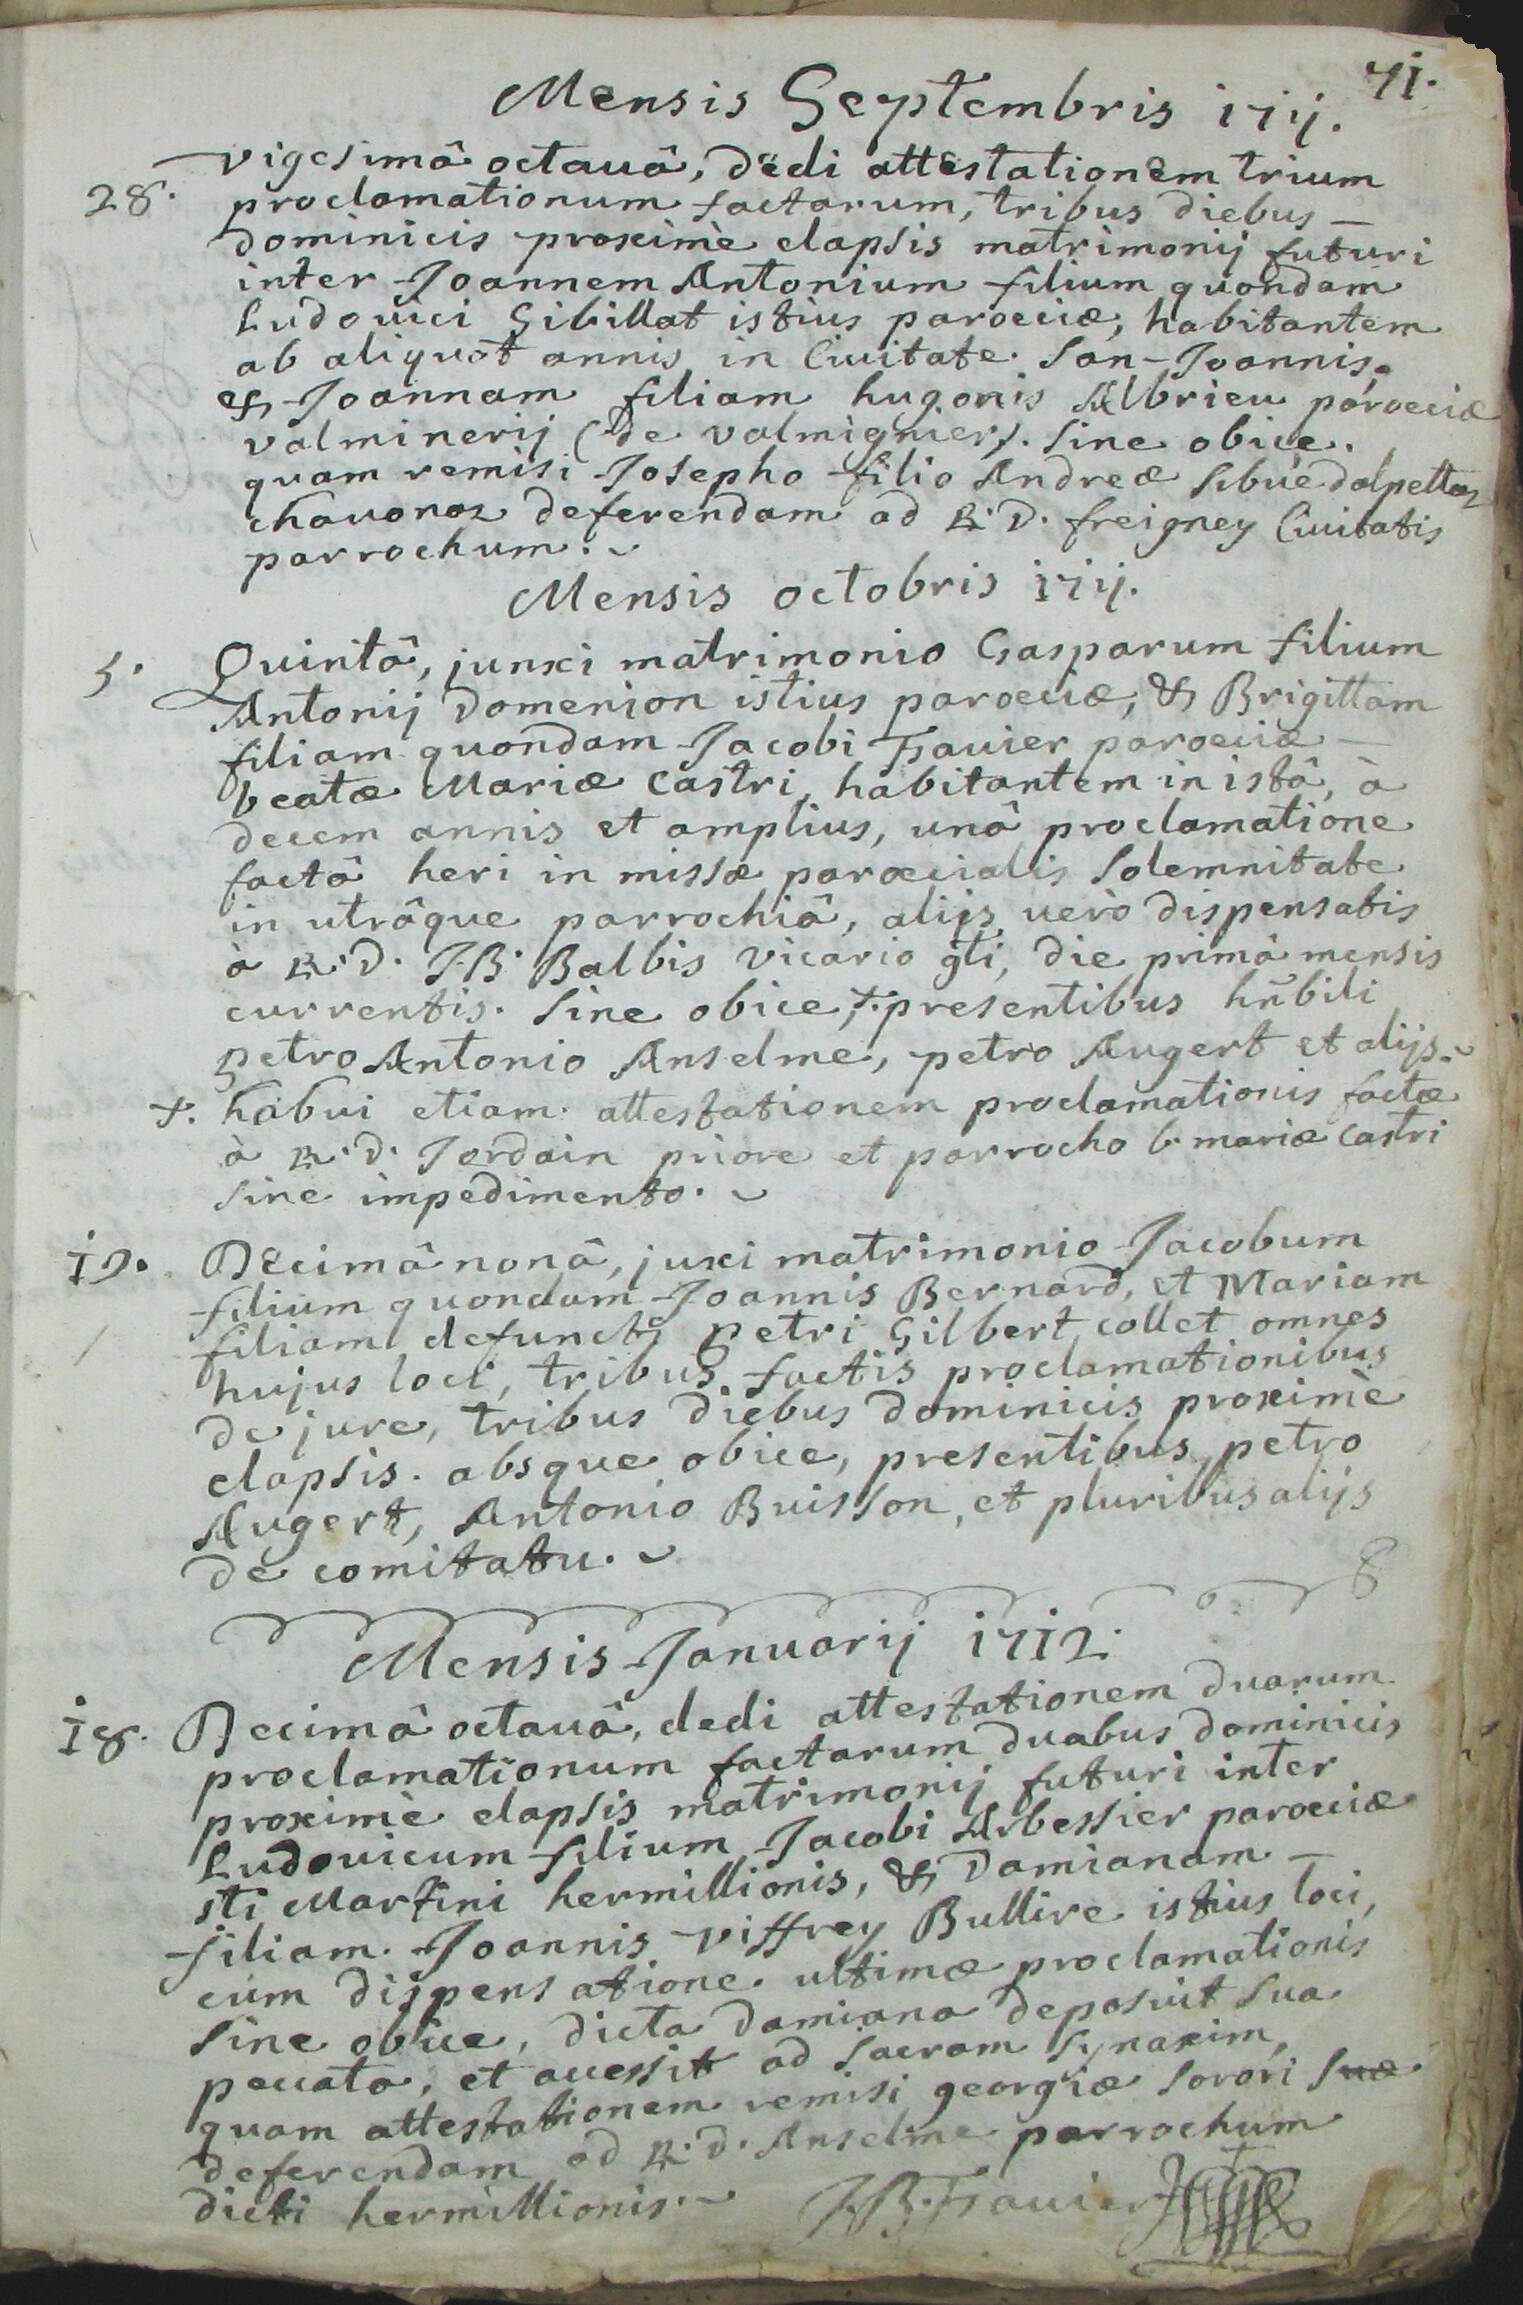 71.
Mensis Septembris 1711.
28. vigesimâ octauâ, dedi attestationem trium
proclamationum factarum, tribus diebus
dominicis proximè elapsis matrimonij futuri
inter Joannem Antonium filium quondam
Ludouici Gibillat istius parœciæ, habitantem
ab aliquot annis in Ciuitate San-Joannis,
& Joannam filiam hugonis Albrieu parœciæ
valminerij (de valmignier). sine obice.
quam remisi Josepho filio Andreæ Sibüe dalpettaz
chauonaz deferendam ad R. D. freigney Ciuitatis
parrochum.
Mensis octobris 1711.
5. Quintâ, junxi matrimonio Gasparum filium
Antonij Domenjon istius parœciæ, & Brigittam
filiam quondam Jacobi Frauier parœciæ
beatæ Mariæ Castri, habitantem in istâ, à
decem annis et amplius, unâ proclamatione
factâ heri in missæ parœcialis solemnitate
in utrâque parrochiâ, alijs uerò dispensatis
à R. D. J.B. Balbis Vicario gli, die primâ mensis
currentis. sine obice, +. presentibus hñbili
petro Antonio Anselme, petro Augert et alijs.
+. habui etiam attestationem proclamationis factæ
à R. D. Jordain priore et parrocho b. mariæ Castri
sine impedimento.
19. Decimâ nonâ, juxi matrimonio Jacobum
filium quondam Joannis Bernard, et Mariam
filiam defuncti petri Gilbert collet omnes
hujus loci, tribus factis proclamationibus
de jure, tribus diebus dominicis proximè
elapsis. absque obice, presentibus petro
Augert, Antonio Buisson, et pluribus alijs
de comitatu.
Mensis Januarij 1712.
18. Decimâ octauâ, dedi attestationem duarum
proclamationum factarum duabus dominicis
proximè elapsis matrimonij futuri inter
Ludouicum filium Jacobi Arbessier parœciæ
sti Martini hermillionis, & Damianam
filiam Joannis viffrey Bullire istius loci,
cum dispensatione ultimæ proclamationis
sine obice, dicta Damiana deposuit sua
peccata, et accessit ad sacram synaxim,
quam attestationem remisi georgiæ sorori suæ
deferendam ad R. D. Anselme parrochum
dicti hermillionis. J.B. Frauier